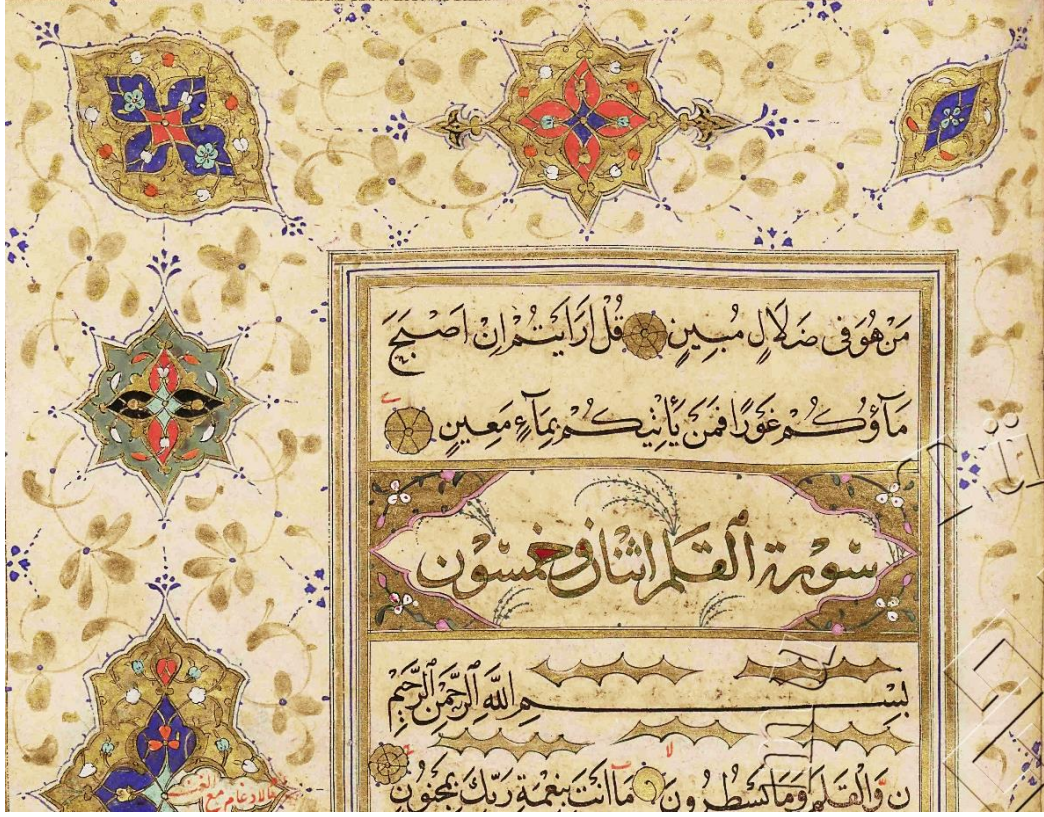 مَنْ هُوَ فِى ضَلَالٍ مُبِينٍ قُلْ اَرَاَيْتُمْ اِنْ اَصْبَحَ
مَآؤُكُمْ غَوْرًا فَمَنْ يَأْتِيكُمْ بِمَآءٍ مَعِينٍ
سورة القلم اثنان وخمسون
بِسْمِ اللَّهِ الرَّحْمٰنِ الرَّحِيمِ
نٓ وَالْقَلَمِ وَمَا يَسْطُرُونَ مَآ اَنْتَ بِنِعْمَةِ رَبِّكَ بِمَجْنُونٍ